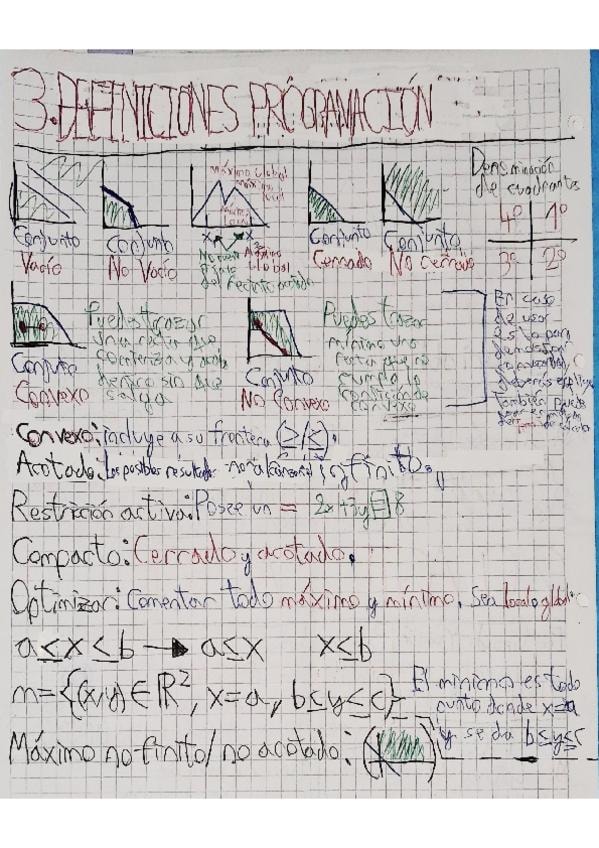 3. DEFINICIONES PROGRAMACIÓN
Conjunto
Vacío
Conjunto
No Vacío
Máximo Global
X X
Global
Conjunto
Cerrado
Conjunto
No cerrado
Denominación
de cuadrantes
4º 1º
3º 2º
Conjunto
Convexo
Puedes trazar
una recta que
comienza y acaba
dentro sin que
salga
Conjunto
No Convexo
Puedes trazar
mínimo una
recta que no
cumpla la
condición de
convexo
En caso
de usar
esto para
demostrar
También puede
Convexo: incluye a su frontera (≥/≤).
Acotado: Los posibles resultados no alcanzan infinito.
Restricción activa: Posee un = 2x+3y=8
Compacto: Cerrado y acotado.
Optimizar: Comentar todo máximo y mínimo. Sea local o global.
a≤x≤b → a≤x x≤b
m={(x,y)∈ℝ², x=a, b≤y≤c}
El mínimo es todo
punto donde x=a
y se da b≤y≤c
Máximo no-finito/no acotado: